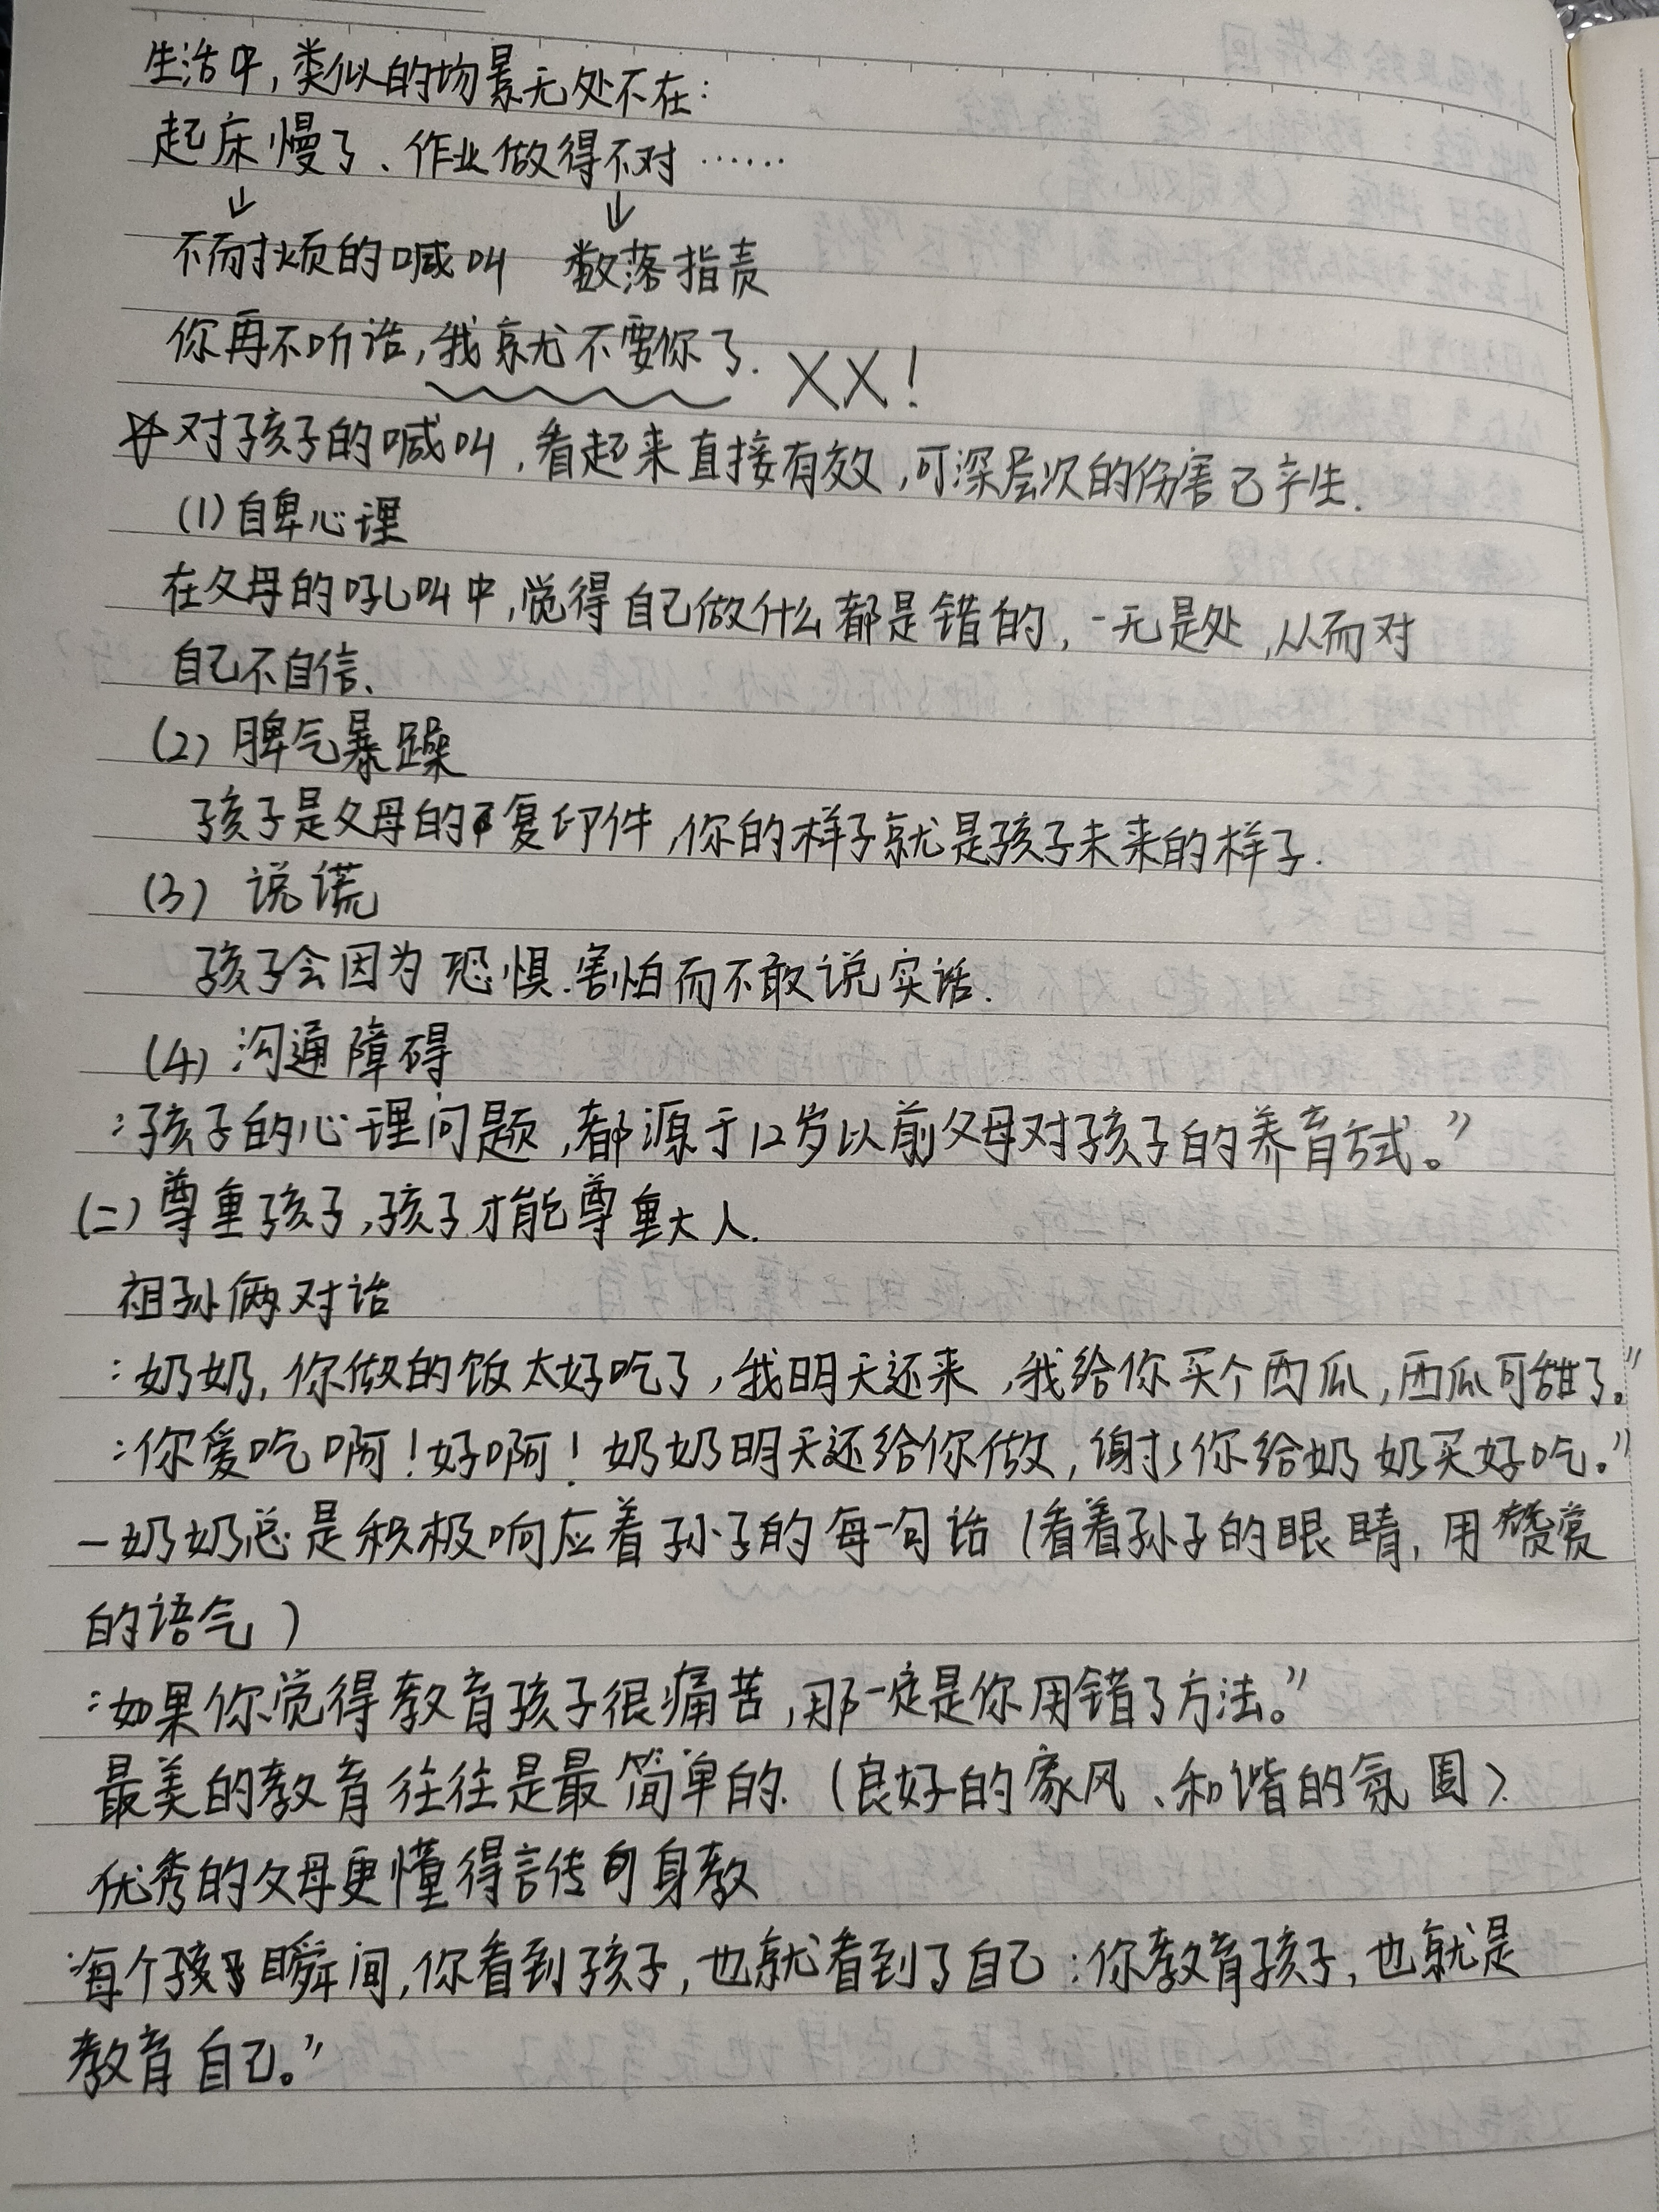 生活中，类似的场景无处不在：
起床慢了、作业做得不对……
↓ ↓
不耐烦的喊叫 数落指责
你再不听话，我就不要你了. XX！
☆对孩子的喊叫，看起来直接有效，可深层次的伤害已产生.
(1)自卑心理
在父母的吼叫中，觉得自己做什么都是错的，一无是处，从而对
自己不自信、
(2) 脾气暴躁
孩子是父母的复印件，你的样子就是孩子未来的样子.
(3) 说谎
孩子会因为恐惧.害怕而不敢说实话.
(4) 沟通障碍
“孩子的心理问题，都源于12岁以前父母对孩子的养育方式。”
(二)尊重孩子，孩子才能尊重大人.
祖孙俩对话
“奶奶，你做的饭太好吃了，我明天还来，我给你买个西瓜，西瓜可甜了。”
“你爱吃啊！好啊！奶奶明天还给你做，谢谢你给奶奶买好吃。”
—奶奶总是积极响应着孙子的每一句话(看着孙子的眼睛，用赞赏
的语气)
“如果你觉得教育孩子很痛苦，那一定是你用错了方法。”
最美的教育往往是最简单的.(良好的家风、和谐的氛围)
优秀的父母更懂得言传身教
“每个瞬间，你看到孩子，也就看到了自己；你教育孩子，也就是
教育自己。”